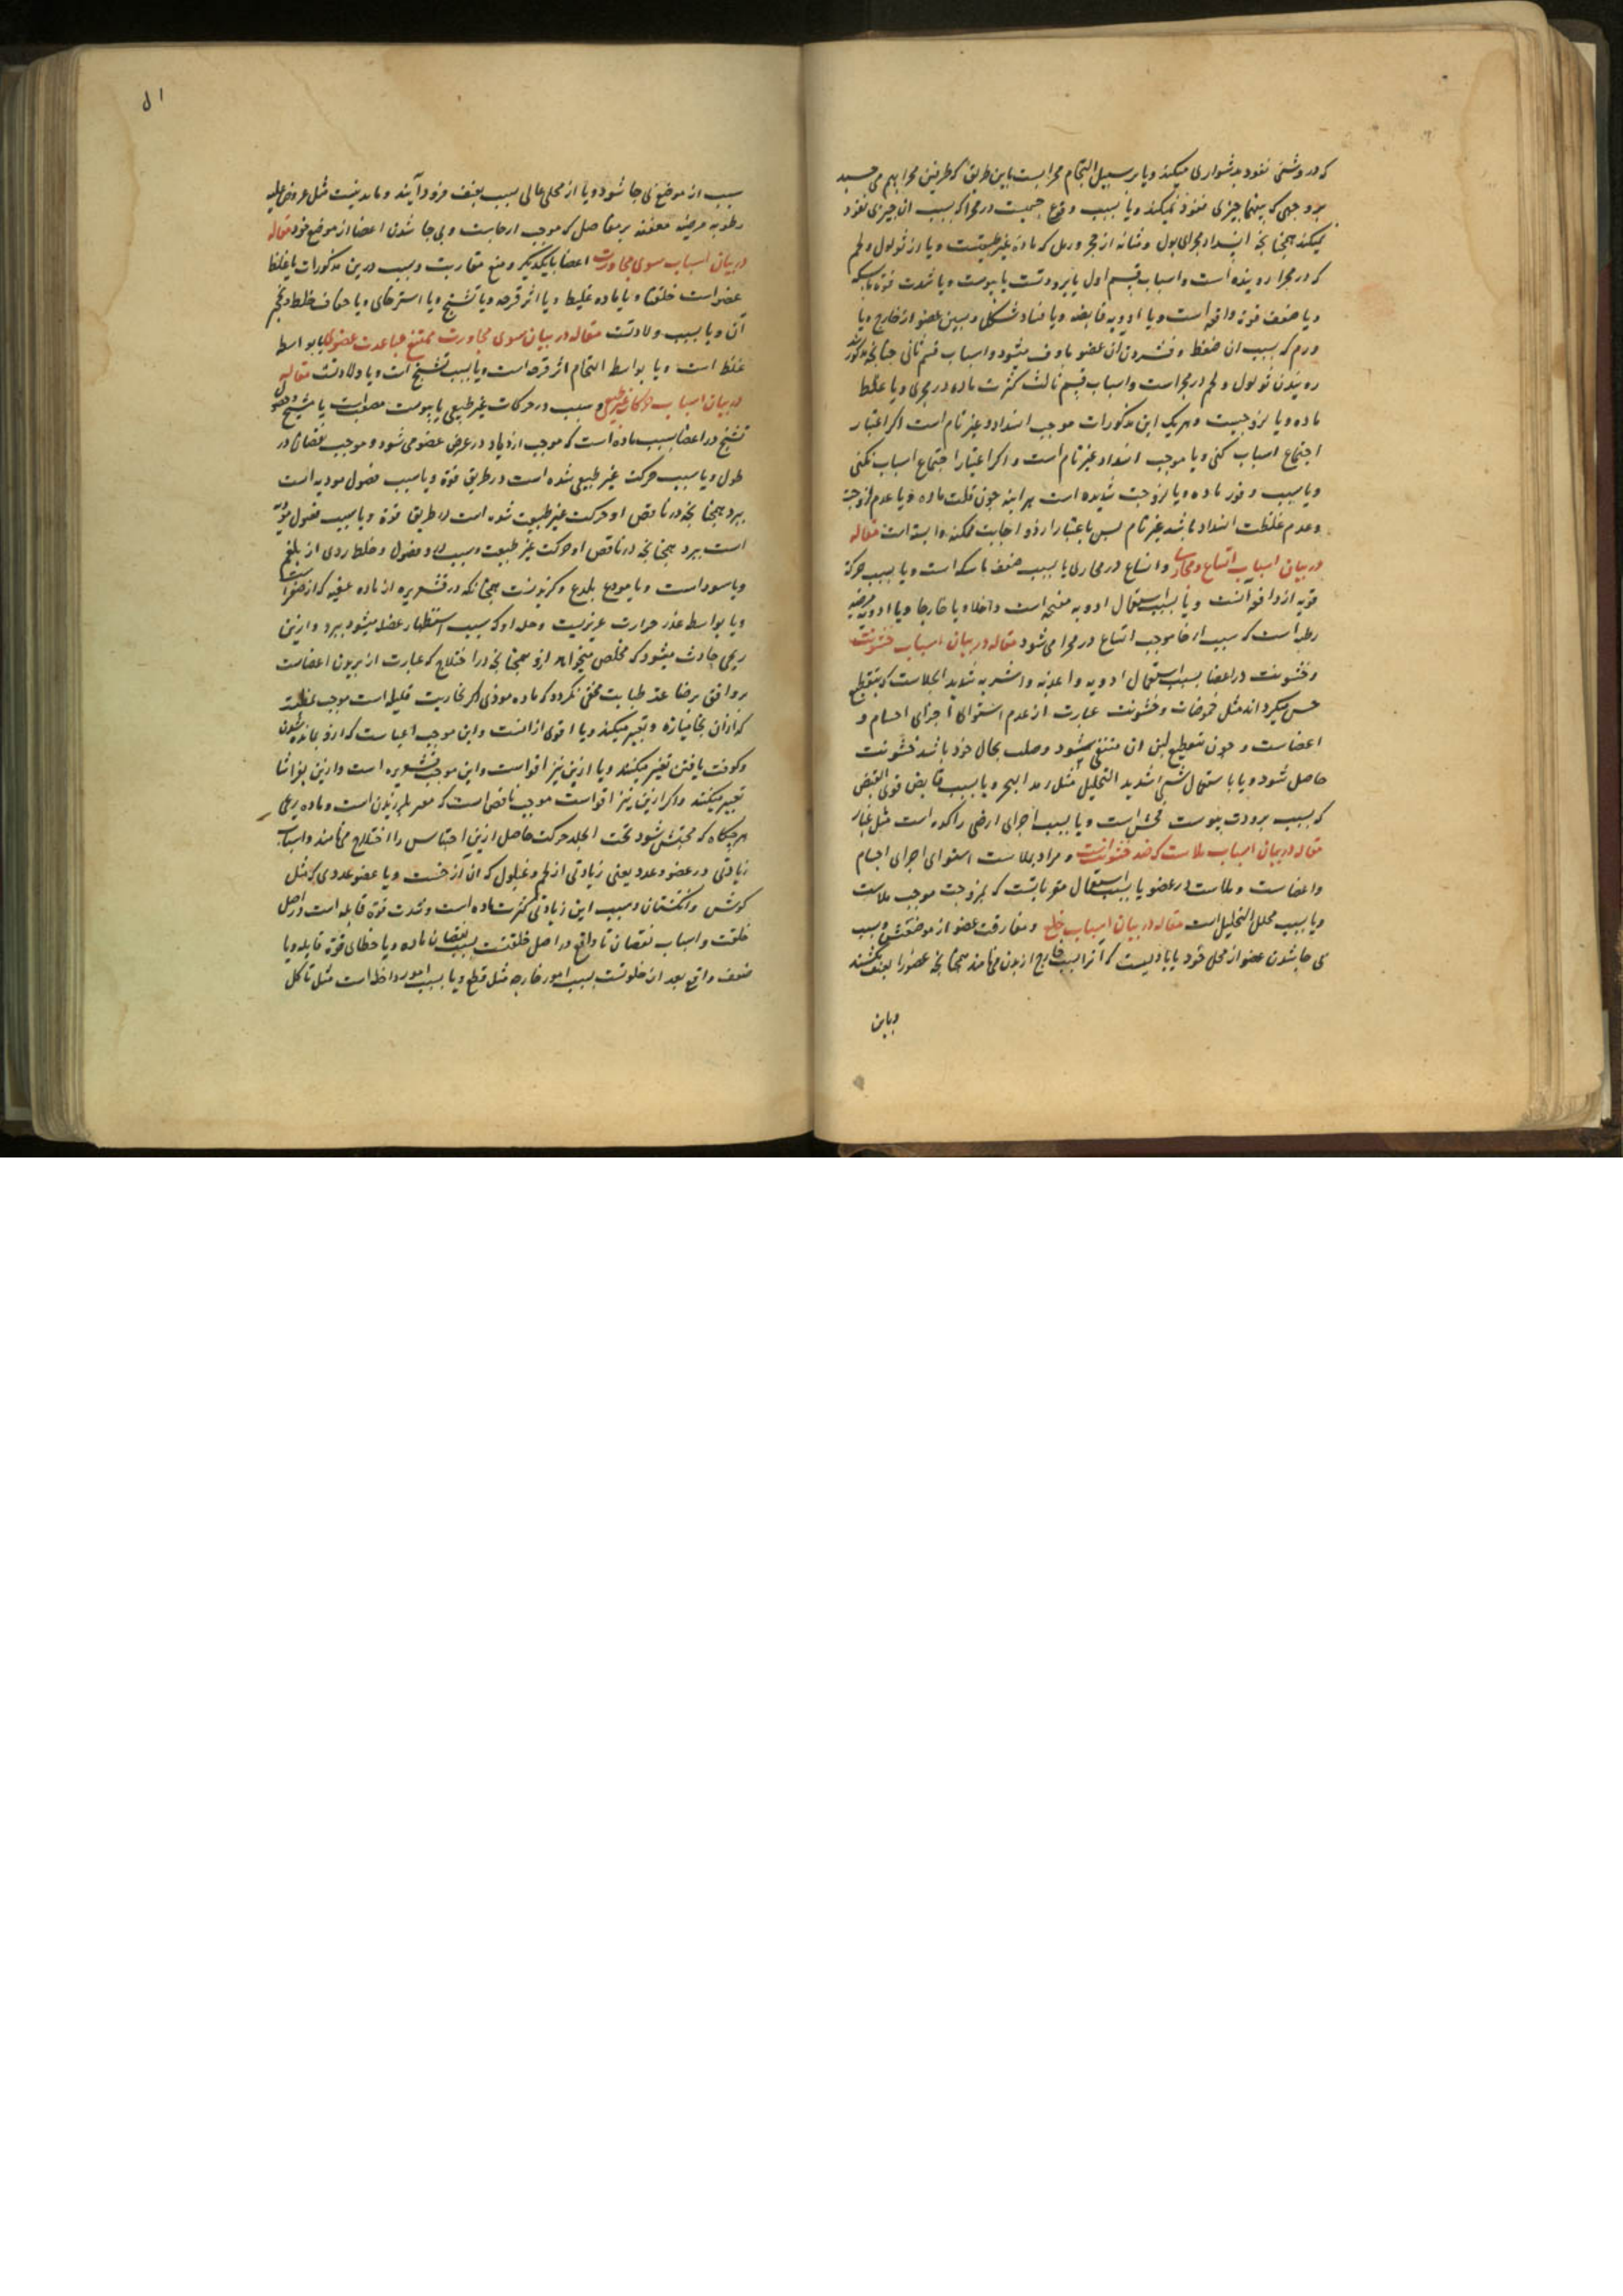 که در وشئ نفوذ بدشواری میکند ویا بر سبیل التحام مجراست باین طریق که طرفین مجرا بهم می جسبد
بر وجهی که بینهما جیزی نفوذ نمیکند ویا بسبب وقوع جسمیت در مجرا که بسبب ان جیزی نفوذ
نمیکند همجنانجه انسداد مجرای بول و مثانه از حجر و رمل که ماده غیر طبیعتست ویا از ثولول و لحم
که در مجرا روینده است واسباب قسم اول یا برودتست یا یبوست ویا شدت قوة ماسکه
ویا ضعف قوة دافعه است ویا ادویه قابضه ویا فساد شکل وبسبن عضو از خارج ویا
ورم که بسبب ان ضغط و فشردن ان عضو ماوف میشود واسباب قسم ثانی جنانجه مذکور شد
روییدن ثولول و لحم در مجراست واسباب قسم ثالث کثرت ماده در مجری ویا غلظ
ماده ویا لزوجیست وهریک این مذکورات موجب انسداد غیر تام است اکر اعتبار
اجتماع اسباب کنی ویا موجب انسداد غیر تام است واکر اعتبار اجتماع اسباب نکنی
ویا بسبب وفور ماده ویا لزوجت شدیده است هراینه جون قلت ماده ویا عدم لزوجت
وعدم غلظت انسداد باشد غیر تام بس باعتبار ارزو اجابت ممکنه وابسته است مقاله
در بیان اسباب اتساع ومجاری واتساع در مجاری یا بسبب ضعف ماسکه است ویا بسبب حرکة
قویه از دافعه آنست ویا بسبب استعمال ادویه مفتحه است داخلا ویا خارجا ویا ادویه مرخیه
رطبه است که بسبب ارخا موجب اتساع در مجرا می شود مقاله در بیان اسباب خشونت
وخشونت در اعضا بسبب استعمال ادویه واغذیه واشربه شدید الجلاست که بتقطیع
حس میکرداند مثل حموضات وخشونت عبارت از عدم استوای اجزای اجسام و
اعضاست وجون بتقطیع لین ان منتفی میشود وصلب بحال خود باشد خشونت
حاصل شود ویا باستعمال شئ شدید التحلیل مثل زبد البحر ویا بسبب قابض قوی القبض
که بسبب برودت یبوست مخشن است ویا بسبب اجزای ارضی راکده است مثل غبار
مقاله در بیان اسباب ملاست که ضد خشونت است ومراد بملاست استوای اجزای اجسام
واعضاست وملاست در عضو یا بسبب استعمال مغریاتست که بلزوجت موجب ملاست
ویا بسبب محلل التحلیل است مقاله در بیان اسباب خلع ومفارقت عضو از موضعش وسبب
بی جا شدن عضو از محل خود یا بادیست که آنرا سبب خارج از بدن می نامند همجنانجه عضو را بعنف بکشند
وباین
۵۱
سبب از موضع بی جا شود ویا از محلی عالی بسبب بعنف فرود آیند ویا بدنیست مثل عروض علیه
رطوبه مرخیه معفنه بر مفاصل که موجب ارخاست وبی جا شدن اعضا از موضع خود مقاله
در بیان اسباب سوی مجاورت اعضا بایکدیکر ومنع مقاربت وسبب درین مذکورات یا غلظ
عضو است خلقتا ویا ماده غلیظ ویا اثر قرحه ویا تشنج ویا استرخای ویا جفاف خلط وتحجر
آن ویا بسبب ولادتست مقاله در بیان سوی مجاورت ممتنع مباعدت عضوی یا بواسطه
غلظ است ویا بواسطه التحام اثر قرحه است ویا بسبب تشنج است ویا ولادتست مقاله
در بیان اسباب حرکات غیر طبیعی وسبب در حرکات غیر طبیعی یا یبوست مصعب است یا مشنج وفضول
تشنج در اعضا بسبب ماده است که موجب ازدیاد در عرض عضو می شود وموجب نقصان در
طول ویا بسبب حرکت غیر طبیعی شده است در طریق قوة ویا سبب فضول موذیه است
ببرد همجنانجه در ناقص او حرکت غیر طبیعت شده است در طریق قوة ویا بسبب فضول مؤذیه
است ببرد همجنانجه در ناقص او حرکت غیر طبیعت وسبب وفضول وخلط ردی از بلغم
ویا سوداست ویا موذع بلذع وکزیدنست همجنانکه در قشعریره از ماده عفنه که از صفراست
ویا بواسطه غذر حرارت عریزیست وحد او که بسبب استظهار عضله میشود ببرد وازین
ریحی حادث میشود که مخلص میخواهد ازو همجنانجه در اختلاج که عبارت از بریدن اعضاست
بر وافق برضا عند طبابت مخفی نکردد که ماده موذی اکر بخاریت قلیله است موجب تمطیست
که ازان بخامیازه وتعبیر میکنند ویا اقوی ازانست واین موجب اعیاست که ازو بمانده شدن
وکوفت یافتن تعبیر میکنند ویا ازین نیز اقواست واین موجب قشعریره است وازین بفراشا
تعبیر میکنند واکر ازین نیز اقواست موجب نافض است که معبر بلرزیدن است وماده ریحی
هرجکاه که محتبس شود تحت الجلد حرکت حاصل ازین احتباس را اختلاج می نامند واسباب
زیادتی در عضو وعدد یعنی زیادتی از لحم وغلول که ان از حسست ویا عضو عددی که مثل
کوش وانکشتان وسبب این زیادتی کثرت ماده است وشدت قوة قابله است در اصل
خلقت واسباب نقصان تا واقع در اصل خلقتست بسبب نقصان ماده ویا خطای قوة قابله ویا
ضعف واقع بعد از خلوتست بسبب امور خارجه مثل قطع ویا بسبب امور داخله است مثل تاکل